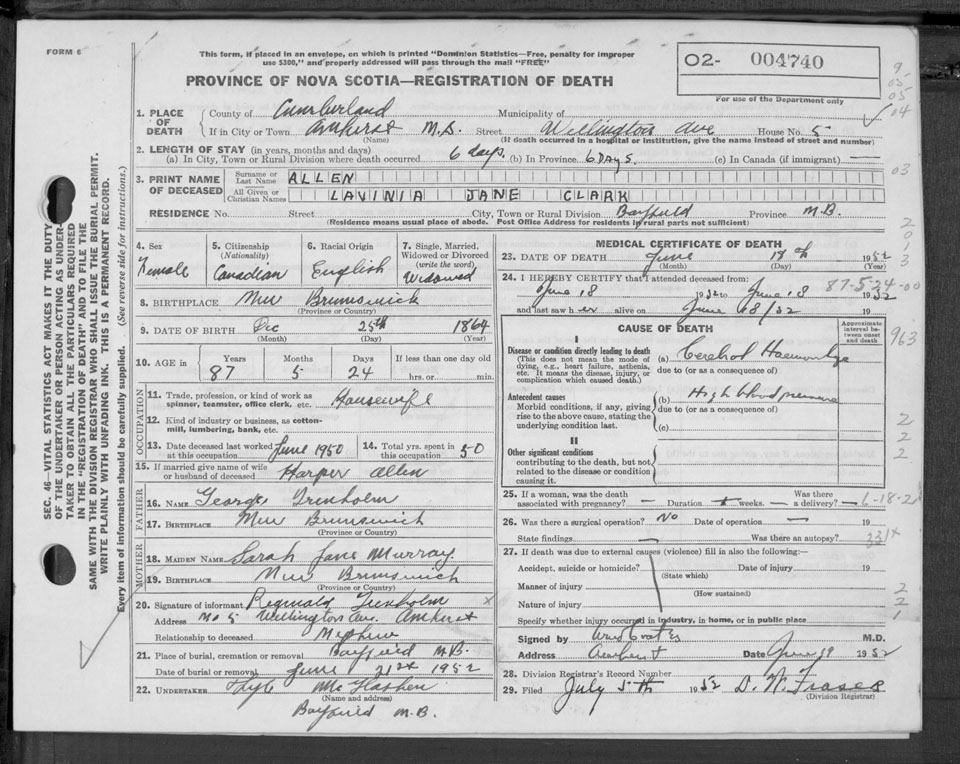 FORM 6
This form, if placed in an envelope, on which is printed "Dominion Statistics—Free, penalty for improper
use $300," and properly addressed will pass through the mail "FREE"
PROVINCE OF NOVA SCOTIA—REGISTRATION OF DEATH
02- 004740
For use of the Department only
9
05
05
04
03
2
0
1
3
87-5-24-00
963
2
2
2
6-18-2
331X
2
2
1
SEC. 46—VITAL STATISTICS ACT MAKES IT THE DUTY
OF THE UNDERTAKER OR PERSON ACTING AS UNDER-
TAKER TO OBTAIN ALL THE PARTICULARS REQUIRED
IN THE "REGISTRATION OF DEATH" AND TO FILE THE
SAME WITH THE DIVISION REGISTRAR WHO SHALL ISSUE THE BURIAL PERMIT.
WRITE PLAINLY WITH UNFADING INK. THIS IS A PERMANENT RECORD.
Every item of information should be carefully supplied. (See reverse side for instructions.)
1. PLACE OF DEATH
County of Cumberland Municipality of
If in City or Town Amherst N.S. Street Wellington Ave House No. 5
(Name) (If death occurred in a hospital or institution, give the name instead of street and number)
2. LENGTH OF STAY (in years, months and days)
(a) In City, Town or Rural Division where death occurred 6 days. (b) In Province 6 DAYS. (c) In Canada (if immigrant) —
3. PRINT NAME OF DECEASED
Surname or Last Name ALLEN
All Given or Christian Names LAVINIA JANE CLARK
RESIDENCE No. Street City, Town or Rural Division Bayfield Province N.B.
(Residence means usual place of abode. Post Office Address for residents in rural parts not sufficient)
4. Sex
Female
5. Citizenship (Nationality)
Canadian
6. Racial Origin
English
7. Single, Married, Widowed or Divorced (write the word)
Widowed
8. BIRTHPLACE New Brunswick
(Province or Country)
9. DATE OF BIRTH Dec 25th 1864
(Month) (Day) (Year)
10. AGE in Years Months Days If less than one day old
87 5 24 hrs. or min.
OCCUPATION
11. Trade, profession, or kind of work as
spinner, teamster, office clerk, etc. Housewife
12. Kind of industry or business, as cotton-
mill, lumbering, bank, etc.
13. Date deceased last worked at this occupation June 1950
14. Total yrs. spent in this occupation 50
15. If married give name of wife
or husband of deceased Harper Allen
FATHER
16. NAME George Trenholm
17. BIRTHPLACE New Brunswick
(Province or Country)
MOTHER
18. MAIDEN NAME Sarah Jane Murray
19. BIRTHPLACE New Brunswick
(Province or Country)
20. Signature of informant Reginald Trenholm X
Address No 5 Wellington Ave. Amherst
Relationship to deceased Nephew
21. Place of burial, cremation or removal Bayfield N.B.
Date of burial or removal June 21st 1952
22. UNDERTAKER
(Name and address)
Bayfield N.B.
MEDICAL CERTIFICATE OF DEATH
23. DATE OF DEATH June 18th 1952
(Month) (Day) (Year)
24. I HEREBY CERTIFY that I attended deceased from:
June 18 1952 to June 18 1952
and last saw her alive on June 18/52 19
CAUSE OF DEATH
Approximate interval between onset and death
I
Disease or condition directly leading to death
(This does not mean the mode of
dying, e.g., heart failure, asthenia,
etc. It means the disease, injury, or
complication which caused death.)
(a) Cerebral Haemorrhage
due to (or as a consequence of)
Antecedent causes
Morbid conditions, if any, giving
rise to the above cause, stating the
underlying condition last.
(b) High blood pressure
due to (or as a consequence of)
(c)
II
Other significant conditions
contributing to the death, but not
related to the disease or condition
causing it.
25. If a woman, was the death associated with pregnancy? — Duration weeks. Was there a delivery? —
26. Was there a surgical operation? No Date of operation — 19
State findings — Was there an autopsy?
27. If death was due to external causes (violence) fill in also the following:—
Accident, suicide or homicide? Date 19
(State which)
Manner of injury
(How sustained)
Nature of injury
Specify whether injury occurred in industry, in home, or in public place
Signed by M.D.
Address Amherst Date June 19 1952
28. Division Registrar's Record Number
29. Filed July 5th 1952 D. W. Fraser
(Division Registrar)